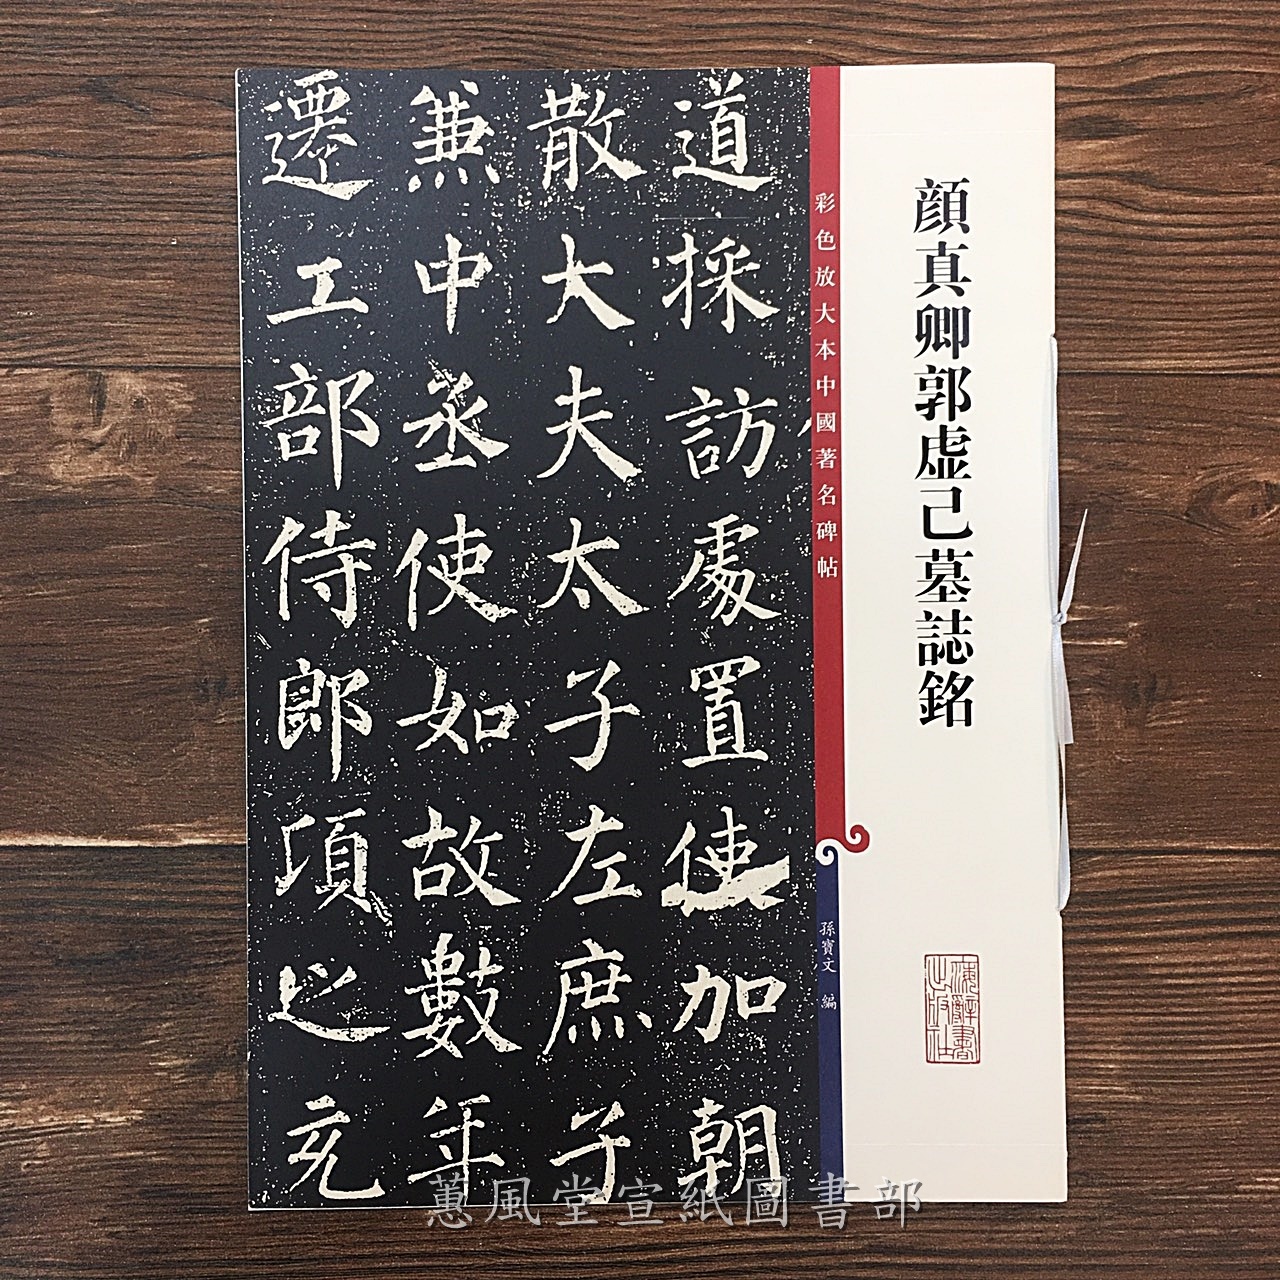 顔真卿郭虚己墓誌銘
彩色放大本中國著名碑帖
孫寳文 編
海辭書
出版社
道採訪處置使加朝
散大夫太子左庶子
兼中丞使如故數年
遷工部侍郎頃之充
蕙風堂宣紙圖書部